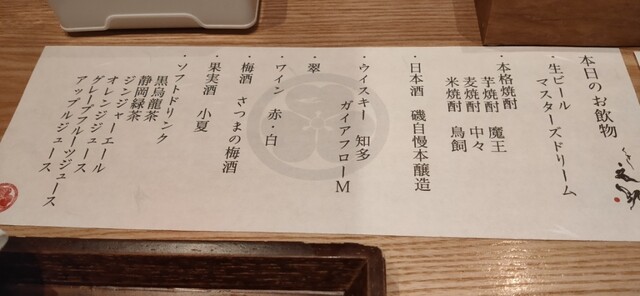 本日のお飲物
・生ビール
マスターズドリーム
・本格焼酎
芋焼酎 魔王
麦焼酎 中々
米焼酎 鳥飼
・日本酒 磯自慢本醸造
・ウイスキー 知多
ガイアフローM
・翠
・ワイン 赤・白
・梅酒 さつまの梅酒
・果実酒 小夏
・ソフトドリンク
黒烏龍茶
静岡緑茶
ジンジャーエール
オレンジジュース
グレープフルーツジュース
アップルジュース